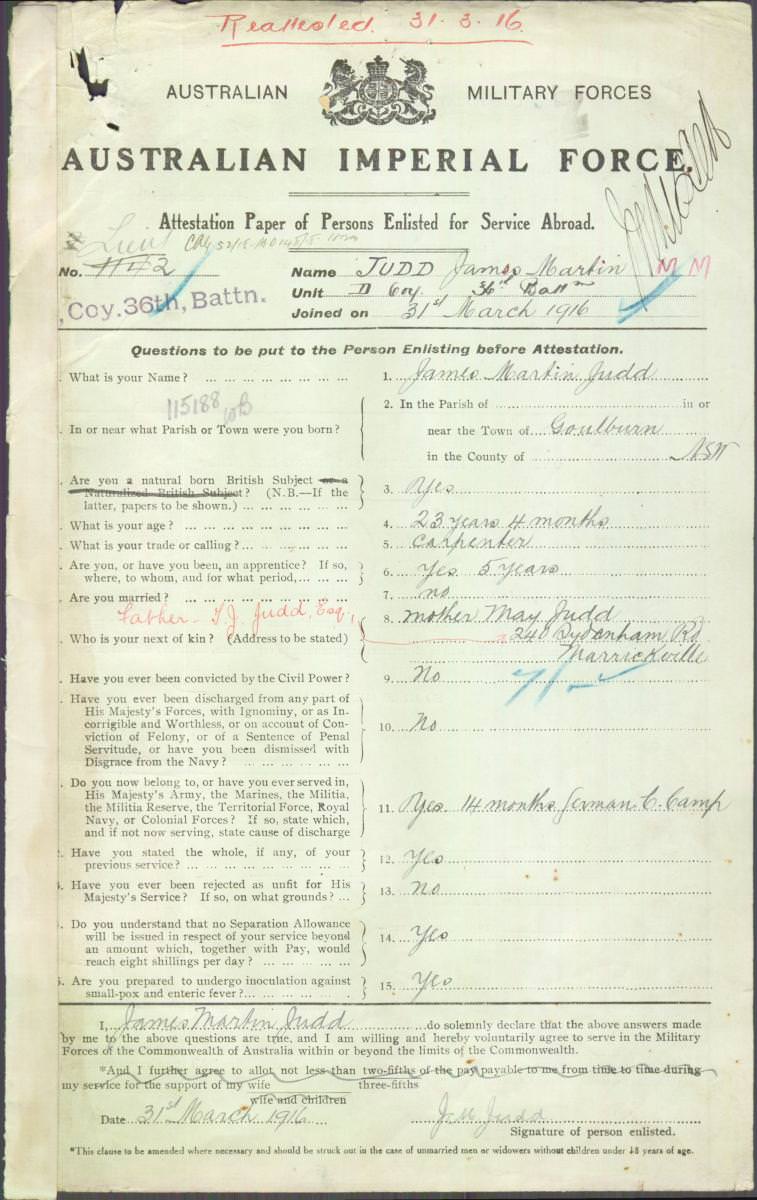 Reattested. 31.3.16
AUSTRALIAN MILITARY FORCES
AUSTRALIAN IMPERIAL FORCE.
Attestation Paper of Persons Enlisted for Service Abroad.
Lieut
No. 1142 Name JUDD James Martin MM
Coy. 36th, Battn. Unit D Coy. 36th Battn
Joined on 31st March 1916
Questions to be put to the Person Enlisting before Attestation.
. What is your Name? ... 1. James Martin Judd
115188
2. In the Parish of in or
. In or near what Parish or Town were you born? near the Town of Goulburn
in the County of NSW
. Are you a natural born British Subject or a
Naturalized British Subject? (N.B.—If the 3. Yes
latter, papers to be shown.) ...
. What is your age? ... 4. 23 years 4 months
. What is your trade or calling? ... 5. Carpenter
. Are you, or have you been, an apprentice? If so,
where, to whom, and for what period, ... 6. Yes 5 years
. Are you married? ... 7. no
Father- T.J. Judd, Esq., 8. mother May Judd
. Who is your next of kin? (Address to be stated) 240 Sydenham Rd
Marrickville
. Have you ever been convicted by the Civil Power? 9. No
. Have you ever been discharged from any part of
His Majesty's Forces, with Ignominy, or as In-
corrigible and Worthless, or on account of Con-
viction of Felony, or of a Sentence of Penal 10. No
Servitude, or have you been dismissed with
Disgrace from the Navy? ...
. Do you now belong to, or have you ever served in,
His Majesty's Army, the Marines, the Militia,
the Militia Reserve, the Territorial Force, Royal 11. Yes. 14 months German C. Camp
Navy, or Colonial Forces? If so, state which,
and if not now serving, state cause of discharge
. Have you stated the whole, if any, of your
previous service? ... 12. Yes
. Have you ever been rejected as unfit for His
Majesty's Service? If so, on what grounds? ... 13. No
. Do you understand that no Separation Allowance
will be issued in respect of your service beyond
an amount which, together with Pay, would 14. Yes
reach eight shillings per day? ...
. Are you prepared to undergo inoculation against
small-pox and enteric fever? ... 15. Yes
I, James Martin Judd do solemnly declare that the above answers made
by me to the above questions are true, and I am willing and hereby voluntarily agree to serve in the Military
Forces of the Commonwealth of Australia within or beyond the limits of the Commonwealth.
*And I further agree to allot not less than two-fifths of the pay payable to me from time to time during
my service for the support of my wife three-fifths
wife and children
Date 31st March 1916 J.M. Judd
Signature of person enlisted.
*This clause to be amended where necessary and should be struck out in the case of unmarried men or widowers without children under 18 years of age.